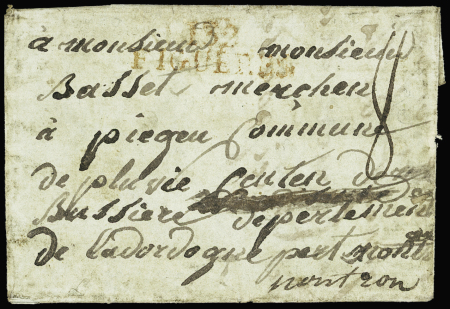 à monsieur monsieur
FIGUERES
Basset merchen 8
à piegeu Commune
de pluvie Centen de
Bussiere depertement
de ladordogue pert mont
nontron